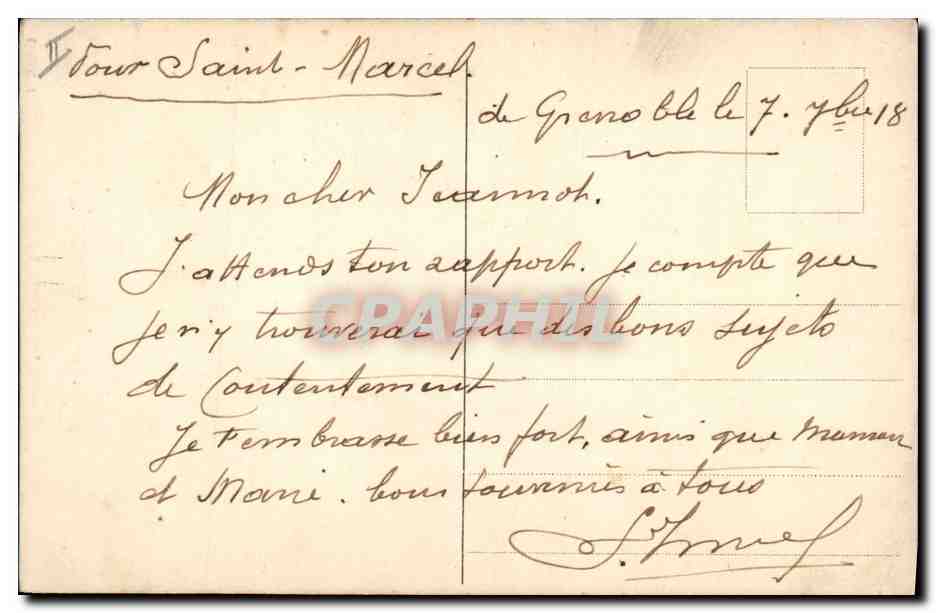 II
Pour Saint-Marcel.
de Grenoble le 7. 7bre 18
Mon cher Jeannot.
J'attends ton rapport. Je compte que
je n'y trouverai que des bons sujets
de Contentement
Je t'embrasse bien fort, ainsi que maman
et Marie. bons souvenirs à tous
CPARHIL